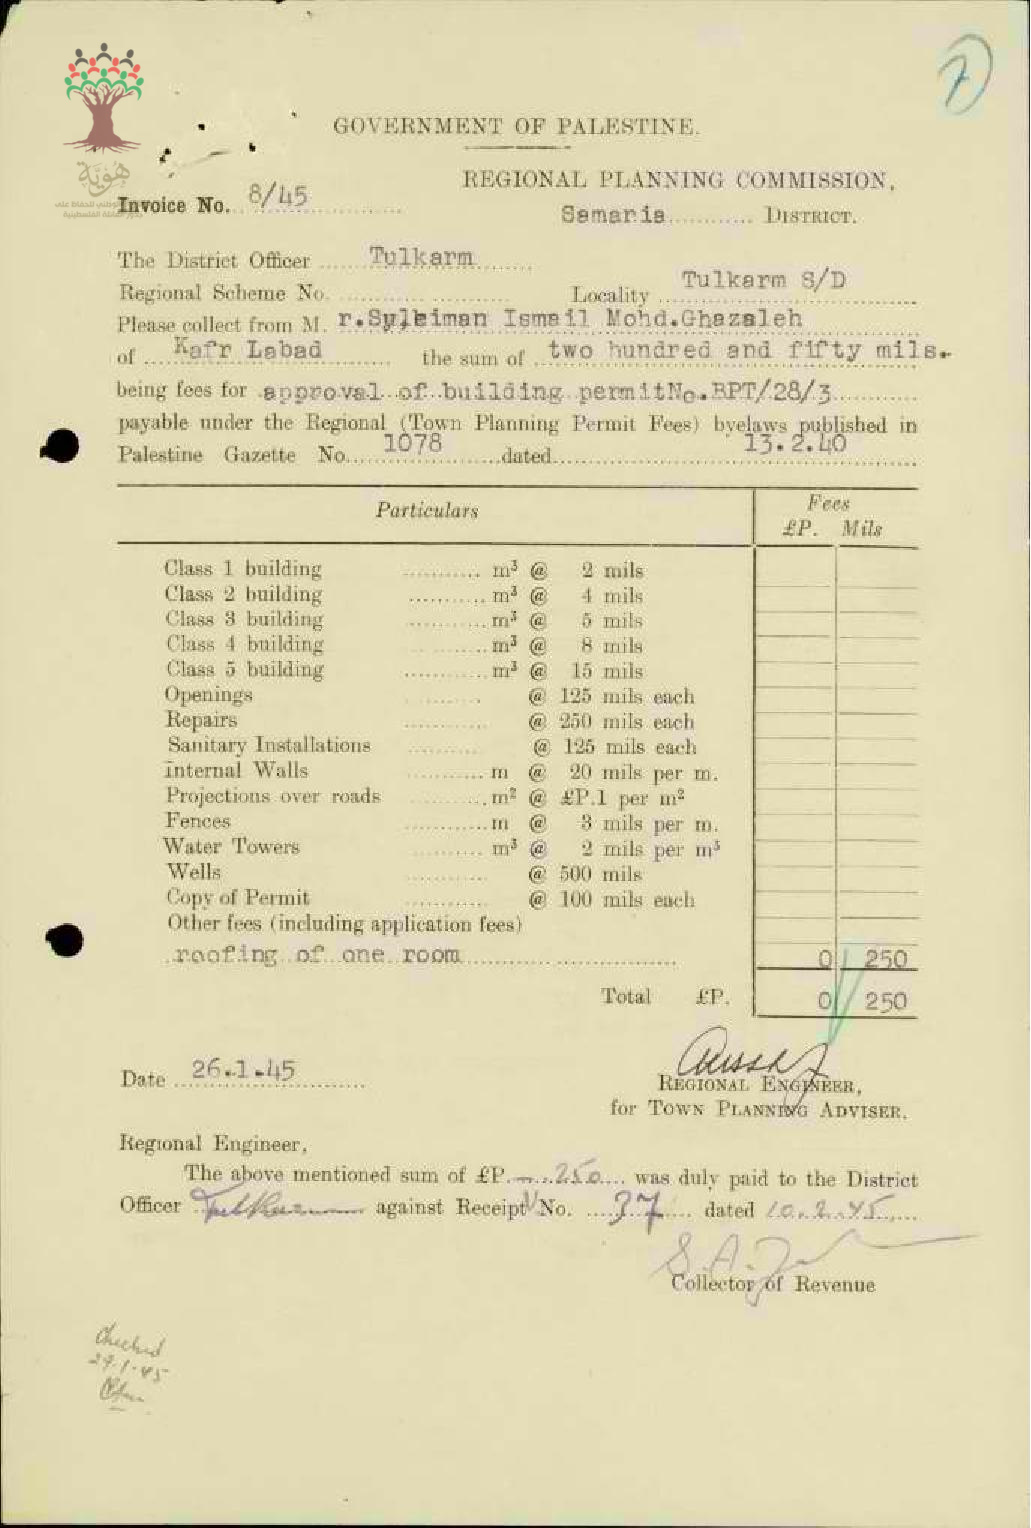 7
GOVERNMENT OF PALESTINE.
REGIONAL PLANNING COMMISSION,
هُوِيَّة
Invoice No. 8/45
Samaria DISTRICT.
The District Officer Tulkarm
Regional Scheme No. Locality Tulkarm S/D
Please collect from M. r.Syleiman Ismail Mohd.Ghazaleh
of Kafr Labad the sum of two hundred and fifty mils.
being fees for approval of building permitNo.BPT/28/3
payable under the Regional (Town Planning Permit Fees) byelaws published in
Palestine Gazette No. 1078 dated 13.2.40
Particulars Fees
£P. Mils
Class 1 building m³ @ 2 mils
Class 2 building m³ @ 4 mils
Class 3 building m³ @ 5 mils
Class 4 building m³ @ 8 mils
Class 5 building m³ @ 15 mils
Openings @ 125 mils each
Repairs @ 250 mils each
Sanitary Installations @ 125 mils each
Internal Walls m @ 20 mils per m.
Projections over roads m² @ £P.1 per m²
Fences m @ 3 mils per m.
Water Towers m³ @ 2 mils per m³
Wells @ 500 mils
Copy of Permit @ 100 mils each
Other fees (including application fees)
roofing of one room 0 250
Total £P. 0 250
Date 26.1.45
REGIONAL ENGINEER,
for TOWN PLANNING ADVISER.
Regional Engineer,
The above mentioned sum of £P. —.250 was duly paid to the District
Officer Tulkarm against Receipt No. 37 dated 10.2.45
Collector of Revenue
Checked
29.1.45